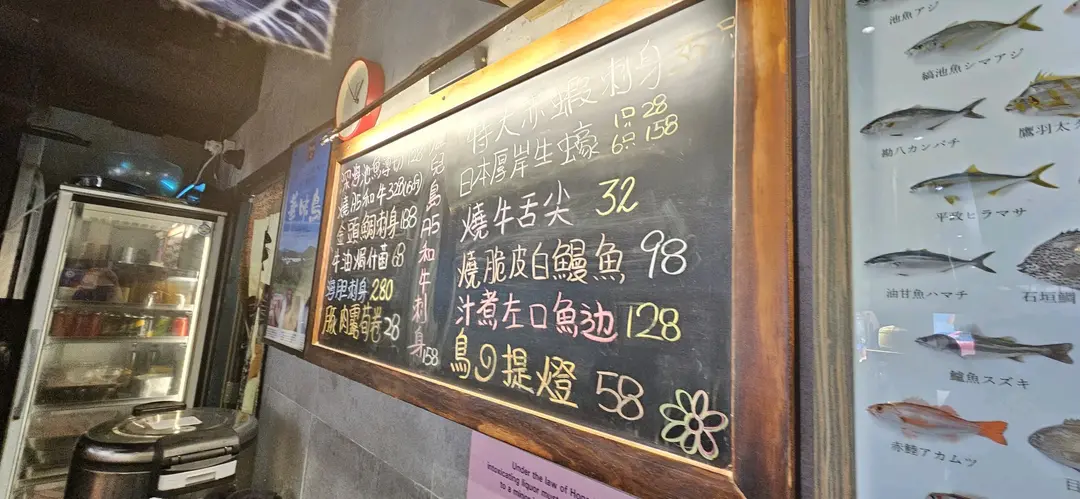 特大赤蝦刺身
日本厚岸生蠔 1只28
6只158
燒牛舌尖 32
燒脆皮白鰻魚 98
汁煮左口魚边 128
鳥の提燈 58
燒A5和牛328(6片)
金頭鯛刺身188
牛油焗什菌68
海胆刺身280
豚肉露荀卷28
児島A5和牛刺身158
池魚アジ
縞池魚シマアジ
勘八カンパチ
鷹羽太
平政ヒラマサ
油甘魚ハマチ
石垣鯛
鱸魚スズキ
赤鯥アカムツ
Under the law of Hong
intoxicating liquor must
to a minor